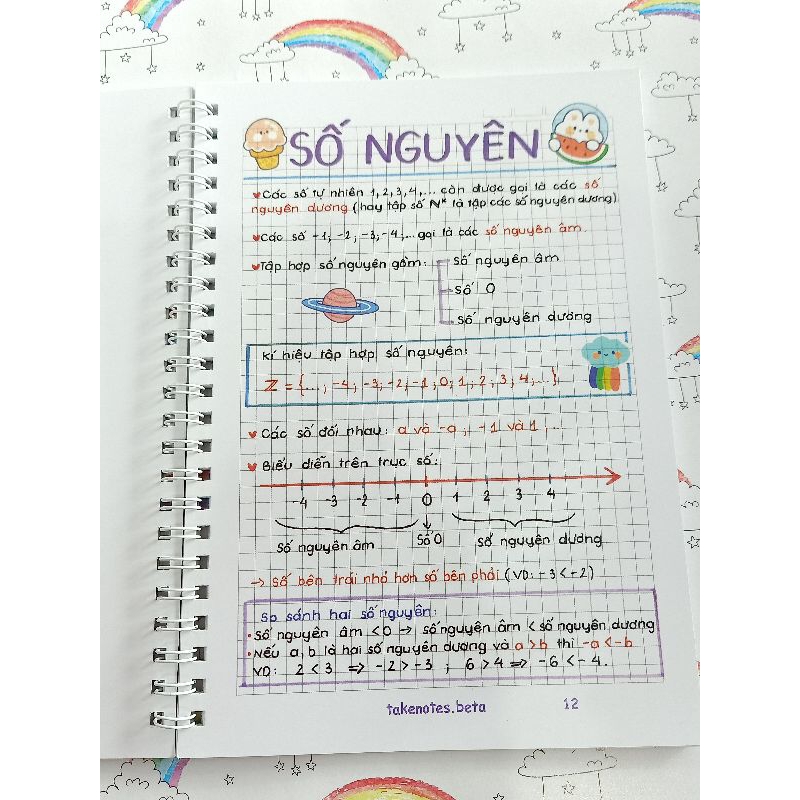 SỐ NGUYÊN
Các số tự nhiên 1, 2, 3, 4,... còn được gọi là các số
nguyên dương (hay tập số N* là tập các số nguyên dương)
Các số -1; -2; -3; -4;... gọi là các số nguyên âm.
Tập hợp số nguyên gồm:
Số nguyên âm
Số 0
Số nguyên dương
Kí hiệu tập hợp số nguyên:
Z = {...; -4; -3; -2; -1; 0; 1; 2; 3; 4;...}
Các số đối nhau: a và -a; -1 và 1,...
Biểu diễn trên trục số:
-4 -3 -2 -1 0 1 2 3 4
Số nguyên âm Số 0 Số nguyên dương
→ Số bên trái nhỏ hơn số bên phải (VD: -3 < -2)
So sánh hai số nguyên:
• Số nguyên âm < 0 → số nguyên âm < số nguyên dương
• Nếu a, b là hai số nguyên dương và a > b thì -a < -b
VD: 2 < 3 ⇒ -2 > -3 ; 6 > 4 ⇒ -6 < -4.
takenotes.beta 12